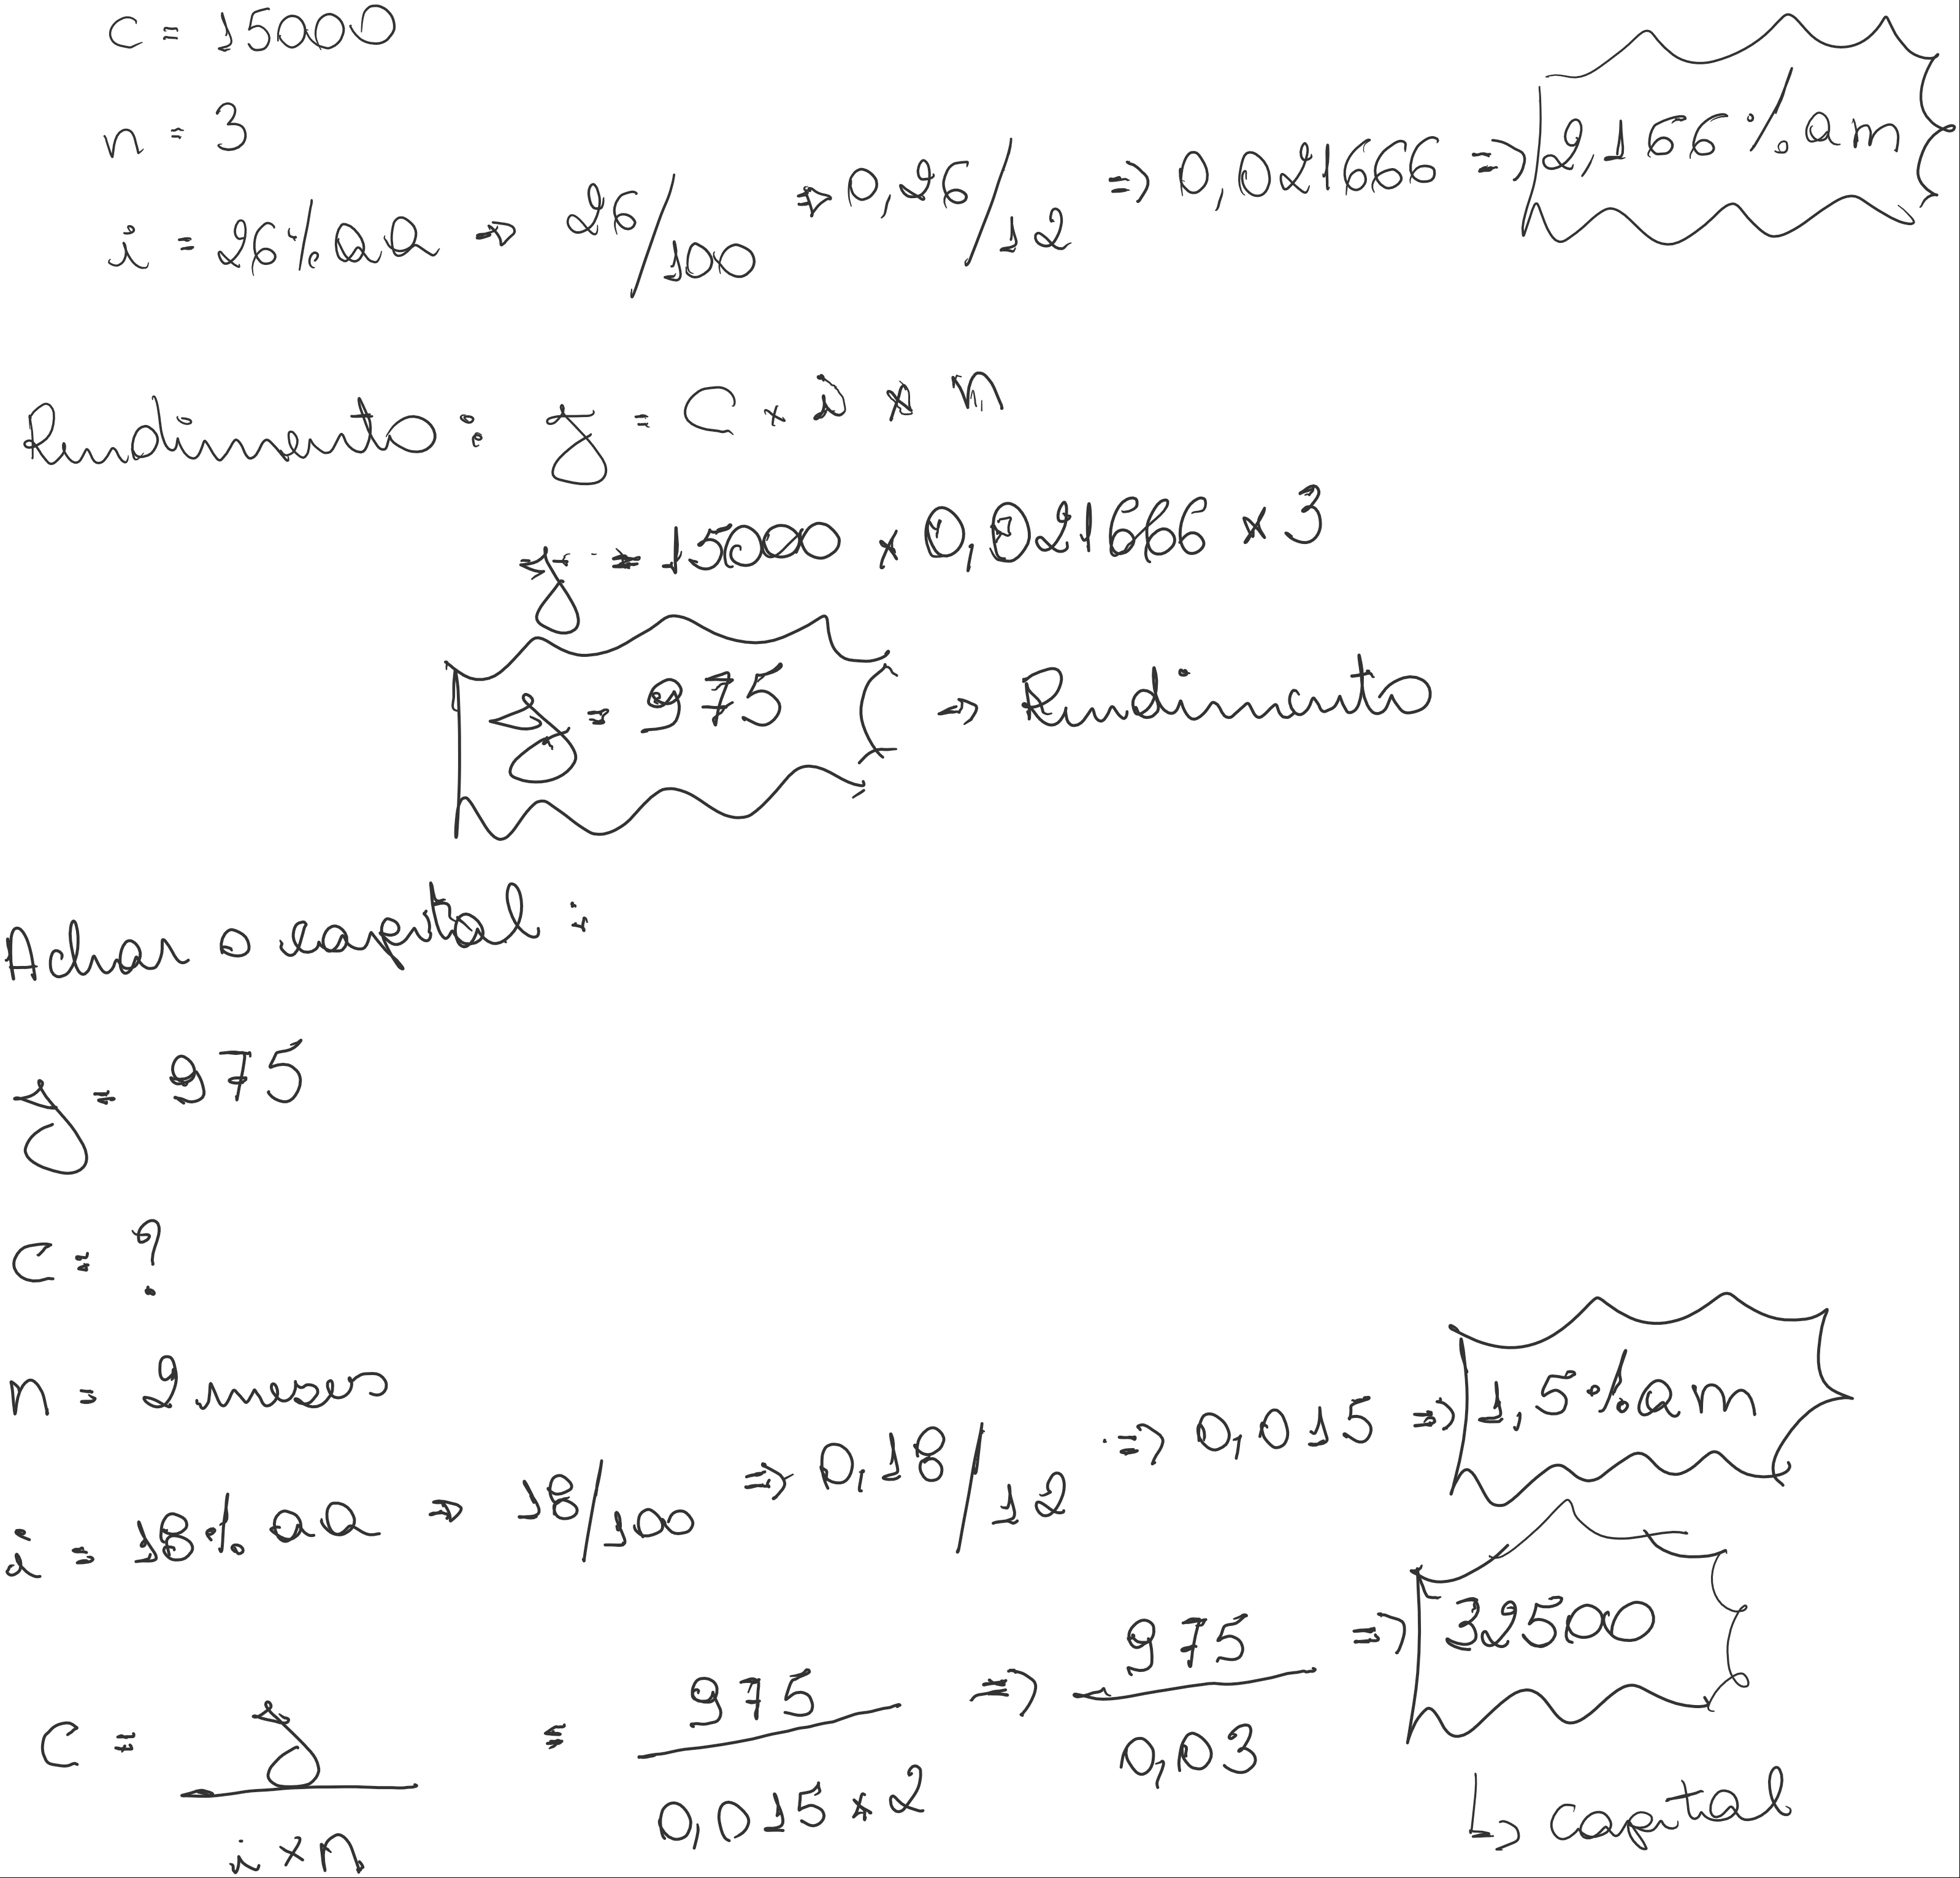 C = 15000
n = 3
i = 26% aa => 26/100 => 0,26/12 => 0,021666 => 2,166% am
Rendimento: J = C x i x n
J = 15000 x 0,021666 x 3
J = 975 => Rendimento
Achar o capital:
J = 975
C = ?
n = 2 meses
i = 18% aa => 18/100 => 0,18/12 => 0,015 => 1,5% am
C = J / i x n = 975 / 0,015 x 2 => 975 / 0,03 => 32500
↳ capital